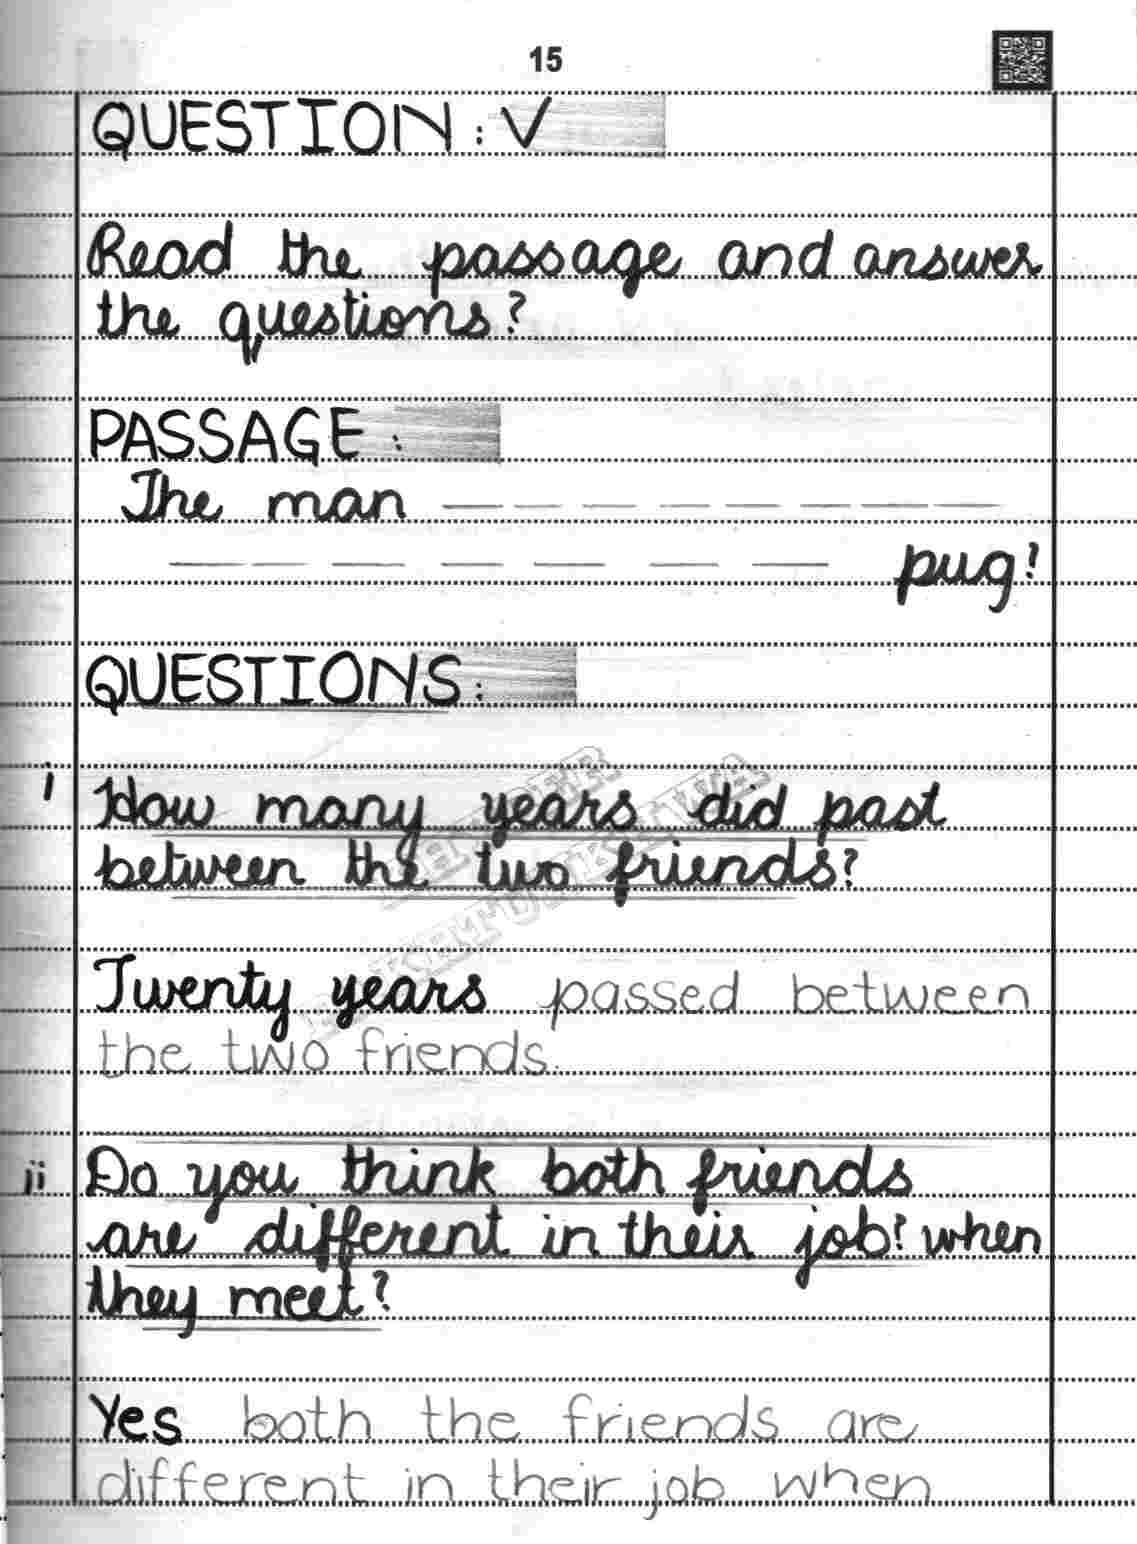 15
QUESTION: V
Read the passage and answer
the questions?
PASSAGE:
The man _ _ _ _ _ _ _ _
_ _ _ _ _ _ _ pug!
QUESTIONS:
i How many years did past
between the two friends?
Twenty years passed between
the two friends.
ii Do you think both friends
are different in their job! when
they meet?
Yes both the friends are
different in their job when